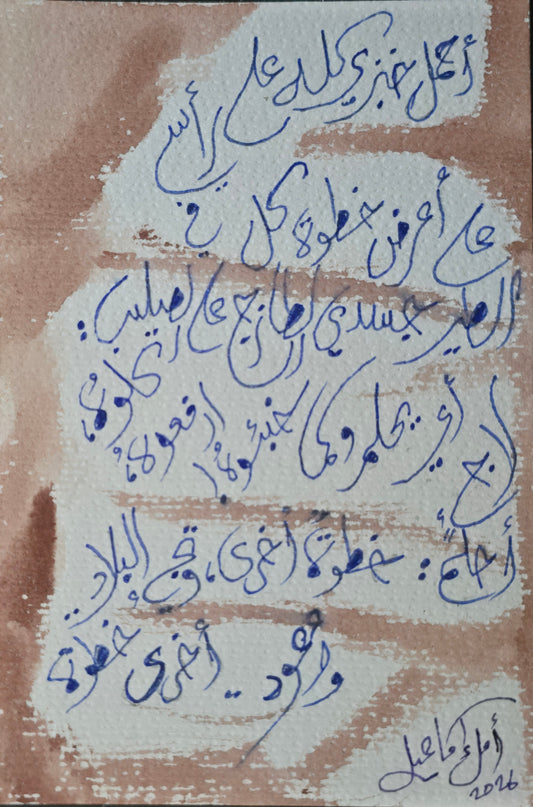 أحمل خبزي كله على رأسي
على أعرض خطوة كل في
الطير جسدي الطازج على الصليب:
كلوهُ،
لا أي يحلم وكما خبئوهُ! ارفعوهُ،
أحلمُ: خطوةً أخرى، وفي البلاد..
وأعود.. أخرى خطوة
أمل إسماعيل
2026